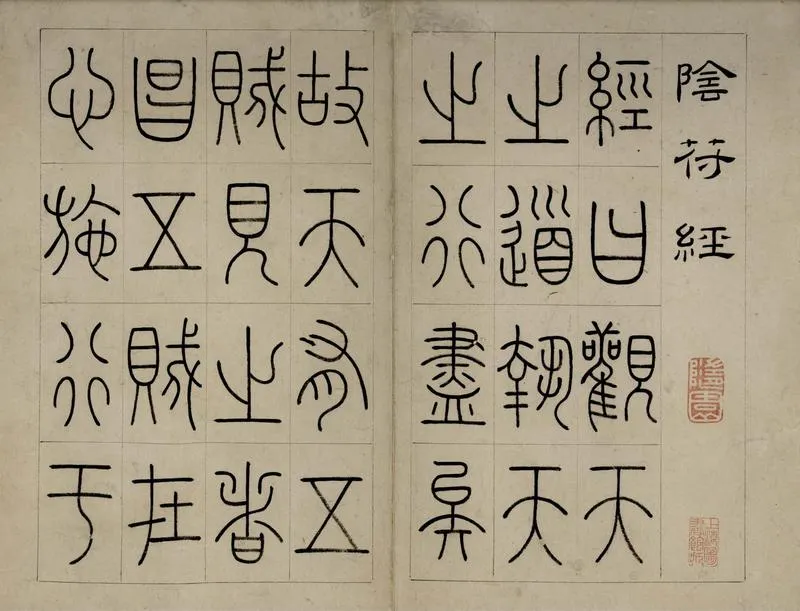 陰符經
經曰觀天
之道執天
之行盡矣
故天有五
賊見之者
昌五賊在
心施行于